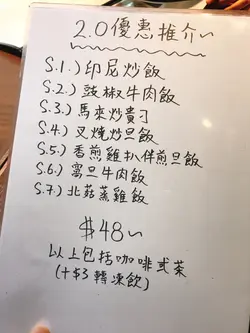 2.0優惠推介~
S.1.)印尼炒飯
S.2.)豉椒牛肉飯
S.3.)馬來炒貴刁
S.4.)叉燒炒旦飯
S.5.)香煎雞扒伴煎旦飯
S.6.)窩旦牛肉飯
S.7.)北菇蒸雞飯
$48~
以上包括咖啡或茶
(+$3轉凍飲)